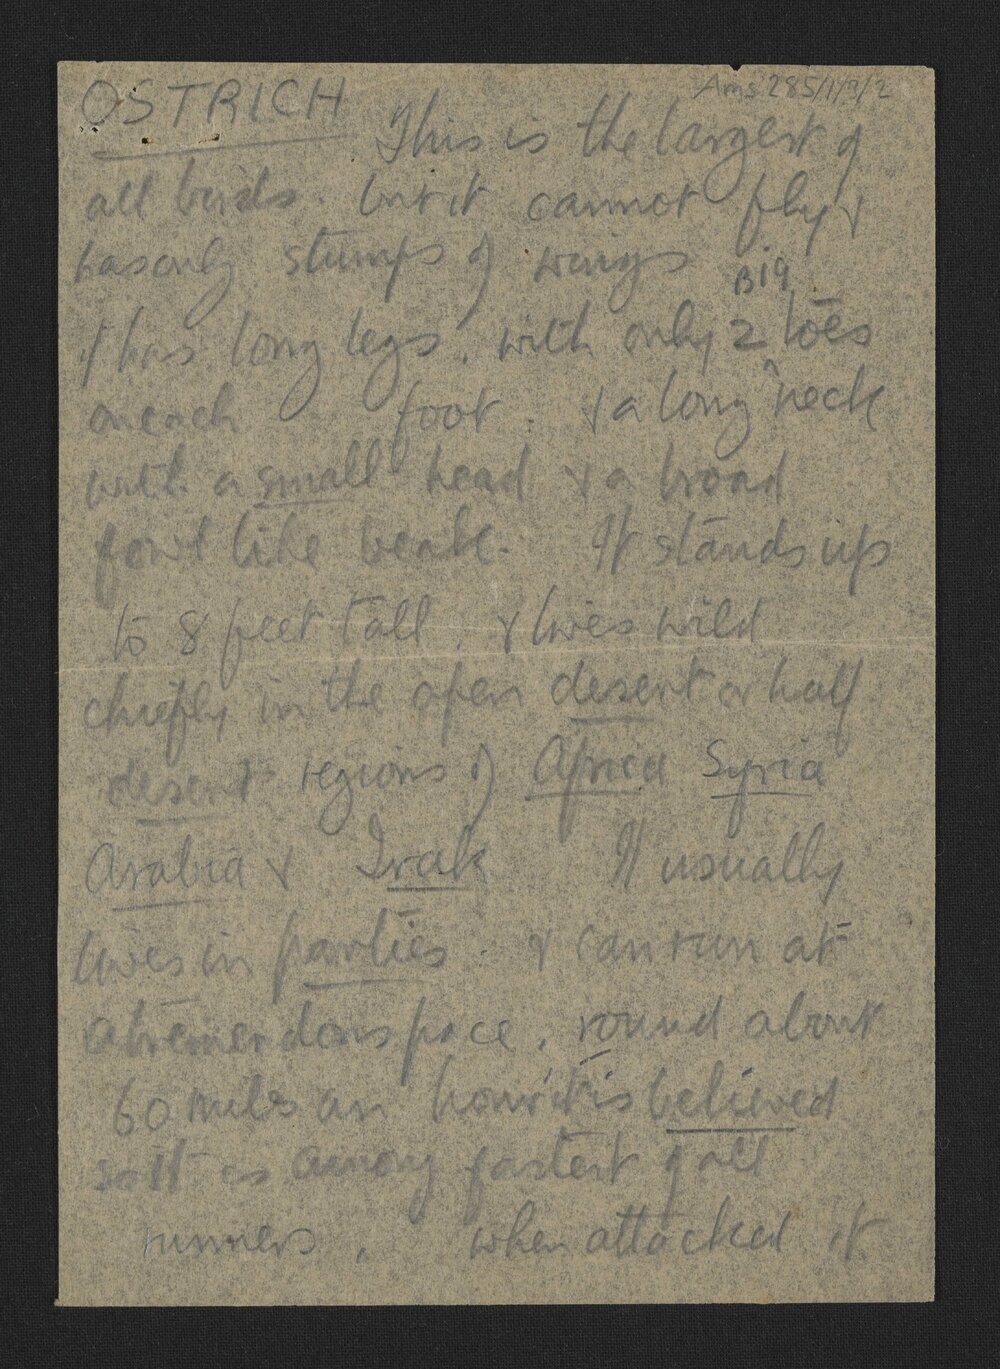 Ams 285/1/9/2
OSTRICH This is the largest of
all birds. but it cannot fly &
has only stumps of wings
BIG
It has long legs. with only 2 toes
on each foot. & a long neck
with a small head & a broad
fowl like beak. It stands up
to 8 feet tall. & lives wild
chiefly in the open desert or half
desert regions of Africa Syria
Arabia & Irak It usually
lives in parties. & can run at
a tremendous pace, round about
60 miles an hour it is believed
so it is among fastest of all
runners. when attacked it